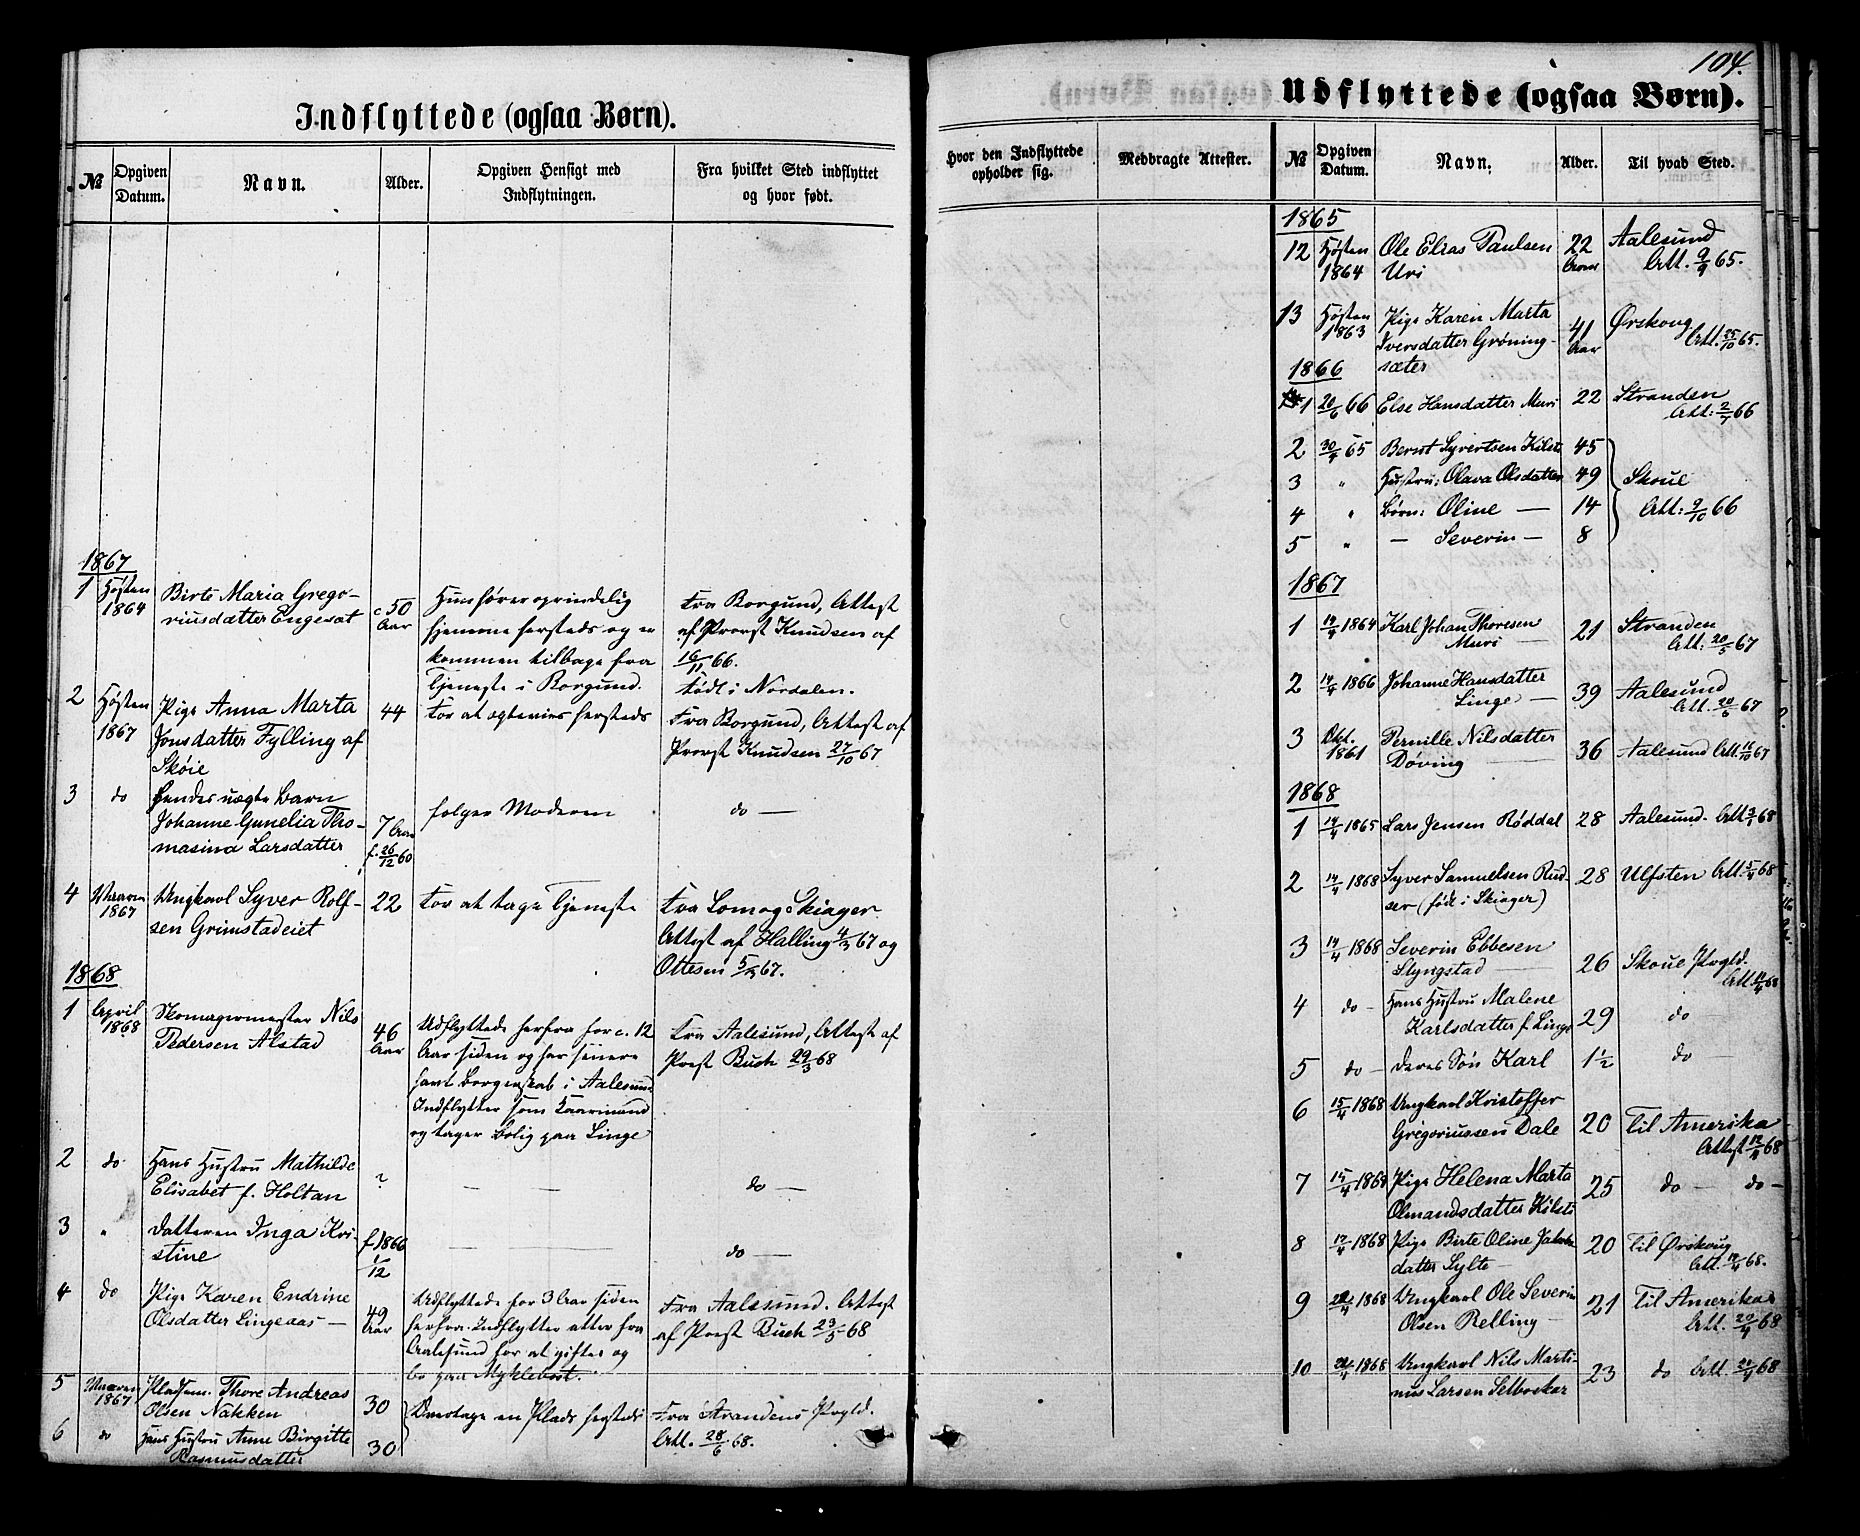 Indflyttede (ogsaa Børn).
№ Opgiven Datum. Navn. Alder. Opgiven Hensigt med Indflytningen. Fra hvilket Sted indflyttet og hvor født.
1867
1 Høsten 1864 Birte Maria Grego-
riusdatter Engeset c. 50 Aar
Hun hører oprindelig
hjemme hersteds og er
kommen tilbage fra
Tjeneste i Borgund.
Fra Borgund, Attest
af Provst Knudsen af
16/11 66.
Født i Nordalen.
2 Høsten 1867 Pige Anna Marta
Jonsdatter Fylling af
Skøie 44
For at ægtevies hersteds
Fra Borgund, Attest af
Provst Knudsen 27/10 67
3 do Hendes uægte Barn
Johanne Gunelia Tho-
masina Larsdatter 7 Aar
f. 26/12 60
følger Moderen
do —
4 Vaaren 1867 Ungkarl Syver Rolf-
sen Grimstadeiet 22
For at tage Tjeneste
Fra Lom og Skiager.
Attest af Halling 4/3 67 og
Ottesen 5/3 67.
1868
1 April 1868 Skomagermester Nils
Pedersen Alstad 46 Aar
Udflyttede herfra for c. 12
Aar siden og har senere
havt Borgerskab i Aalesund.
Indflytter som Kaarmand
og tager Bolig paa Linge
Fra Aalesund, Attest af
Prest Buch 29/3 68
2 do Hans Hustru Mathilde
Elisabet f. Holtan ? — —
do —
3 " Datteren Inga Kri-
stine f. 1866
1/12 — —
do —
4 do Pige Karen Endrine
Olsdatter Lingeaas — 49 Aar
Udflyttede for 3 Aar siden
herfra. Indflytter atter fra
Aalesund for at giftes og
bo paa Myklebost.
Fra Aalesund. Attest
af Prest Buch 23/5 68
5 Vaaren 1867 Pladsm. Thore Andreas
Olsen Nakken 30
Overtage en Plads hersteds
Fra Strandens Prgld.
Att. 28/6 68.
6 do Hans Hustru Anne Birgitte
Rasmusdatter 30
104.
Udflyttede (ogsaa Børn).
Hvor den Indflyttede opholder sig. Medbragte Attester. № Opgiven Datum. Navn. Alder. Til hvad Sted.
1865
12 Høsten 1864 Ole Elias Paulsen
Uri 22 Aar Aalesund
Att. 9/9 65.
13 Høsten 1863 Pige Karen Marta
Iversdatter Grøning-
sæter 41 Aar Ørskoug
Att. 25/10 65.
1866
1 20/6 66 Else Hansdatter Muri 22 Stranden
Att: 2/7 66
2 30/4 65 Bernt Syvertsen Kilsti 45
3 " Hustru: Olava Olsdatter 49 Skoue
4 " Børn: Oline — 14 Att: 9/10 66
5 " — Severin — 8
1867
1 14/4 1864 Karl Johan Thoresen
Muri — 21 Stranden
Att: 20/5 67
2 14/4 1866 Johanne Hansdatter
Linge — 39 Aalesund
Att. 20/6 67
3 Okt. 1861 Pernille Nilsdatter
Døving — 36 Aalesund Att. 16/10 67
1868
1 14/4 1865 Lars Jensen Røddal 28 Aalesund. Att 3/1 68
2 14/4 1868 Syver Samuelsen Rud-
ser (født i Skiager) 28 Ulfsten Att. 5/4 68
3 14/4 1868 Severin Ebbesen
Slyngstad — 26 Skoue Prgld.
Att. 14/4 68
4 do — Hans Hustru Malene
Karlsdatter f. Linge 29 do —
5 do — deres Søn Karl 1 1/2 do —
6 15/4 1868 Ungkarl Kristoffer
Gregoriussen Dale 20 Til Amerika
Attest 12/4 68
7 15/4 1868 Pige Helena Marta
Olmandsdatter Kilsti 25 do — do —
8 14/4 1868 Pige Birte Oline Jakobs
datter Sylte — 20 Til Ørskoug
Att. 14/4 68.
9 22/4 1868 Ungkarl Ole Severin
Olsen Relling — 21 Til Amerika
Att. 20/4 68
10 22/4 1868 Ungkarl Nils Marti-
nus Larsen Selboskar 23 do Att. 21/4 68